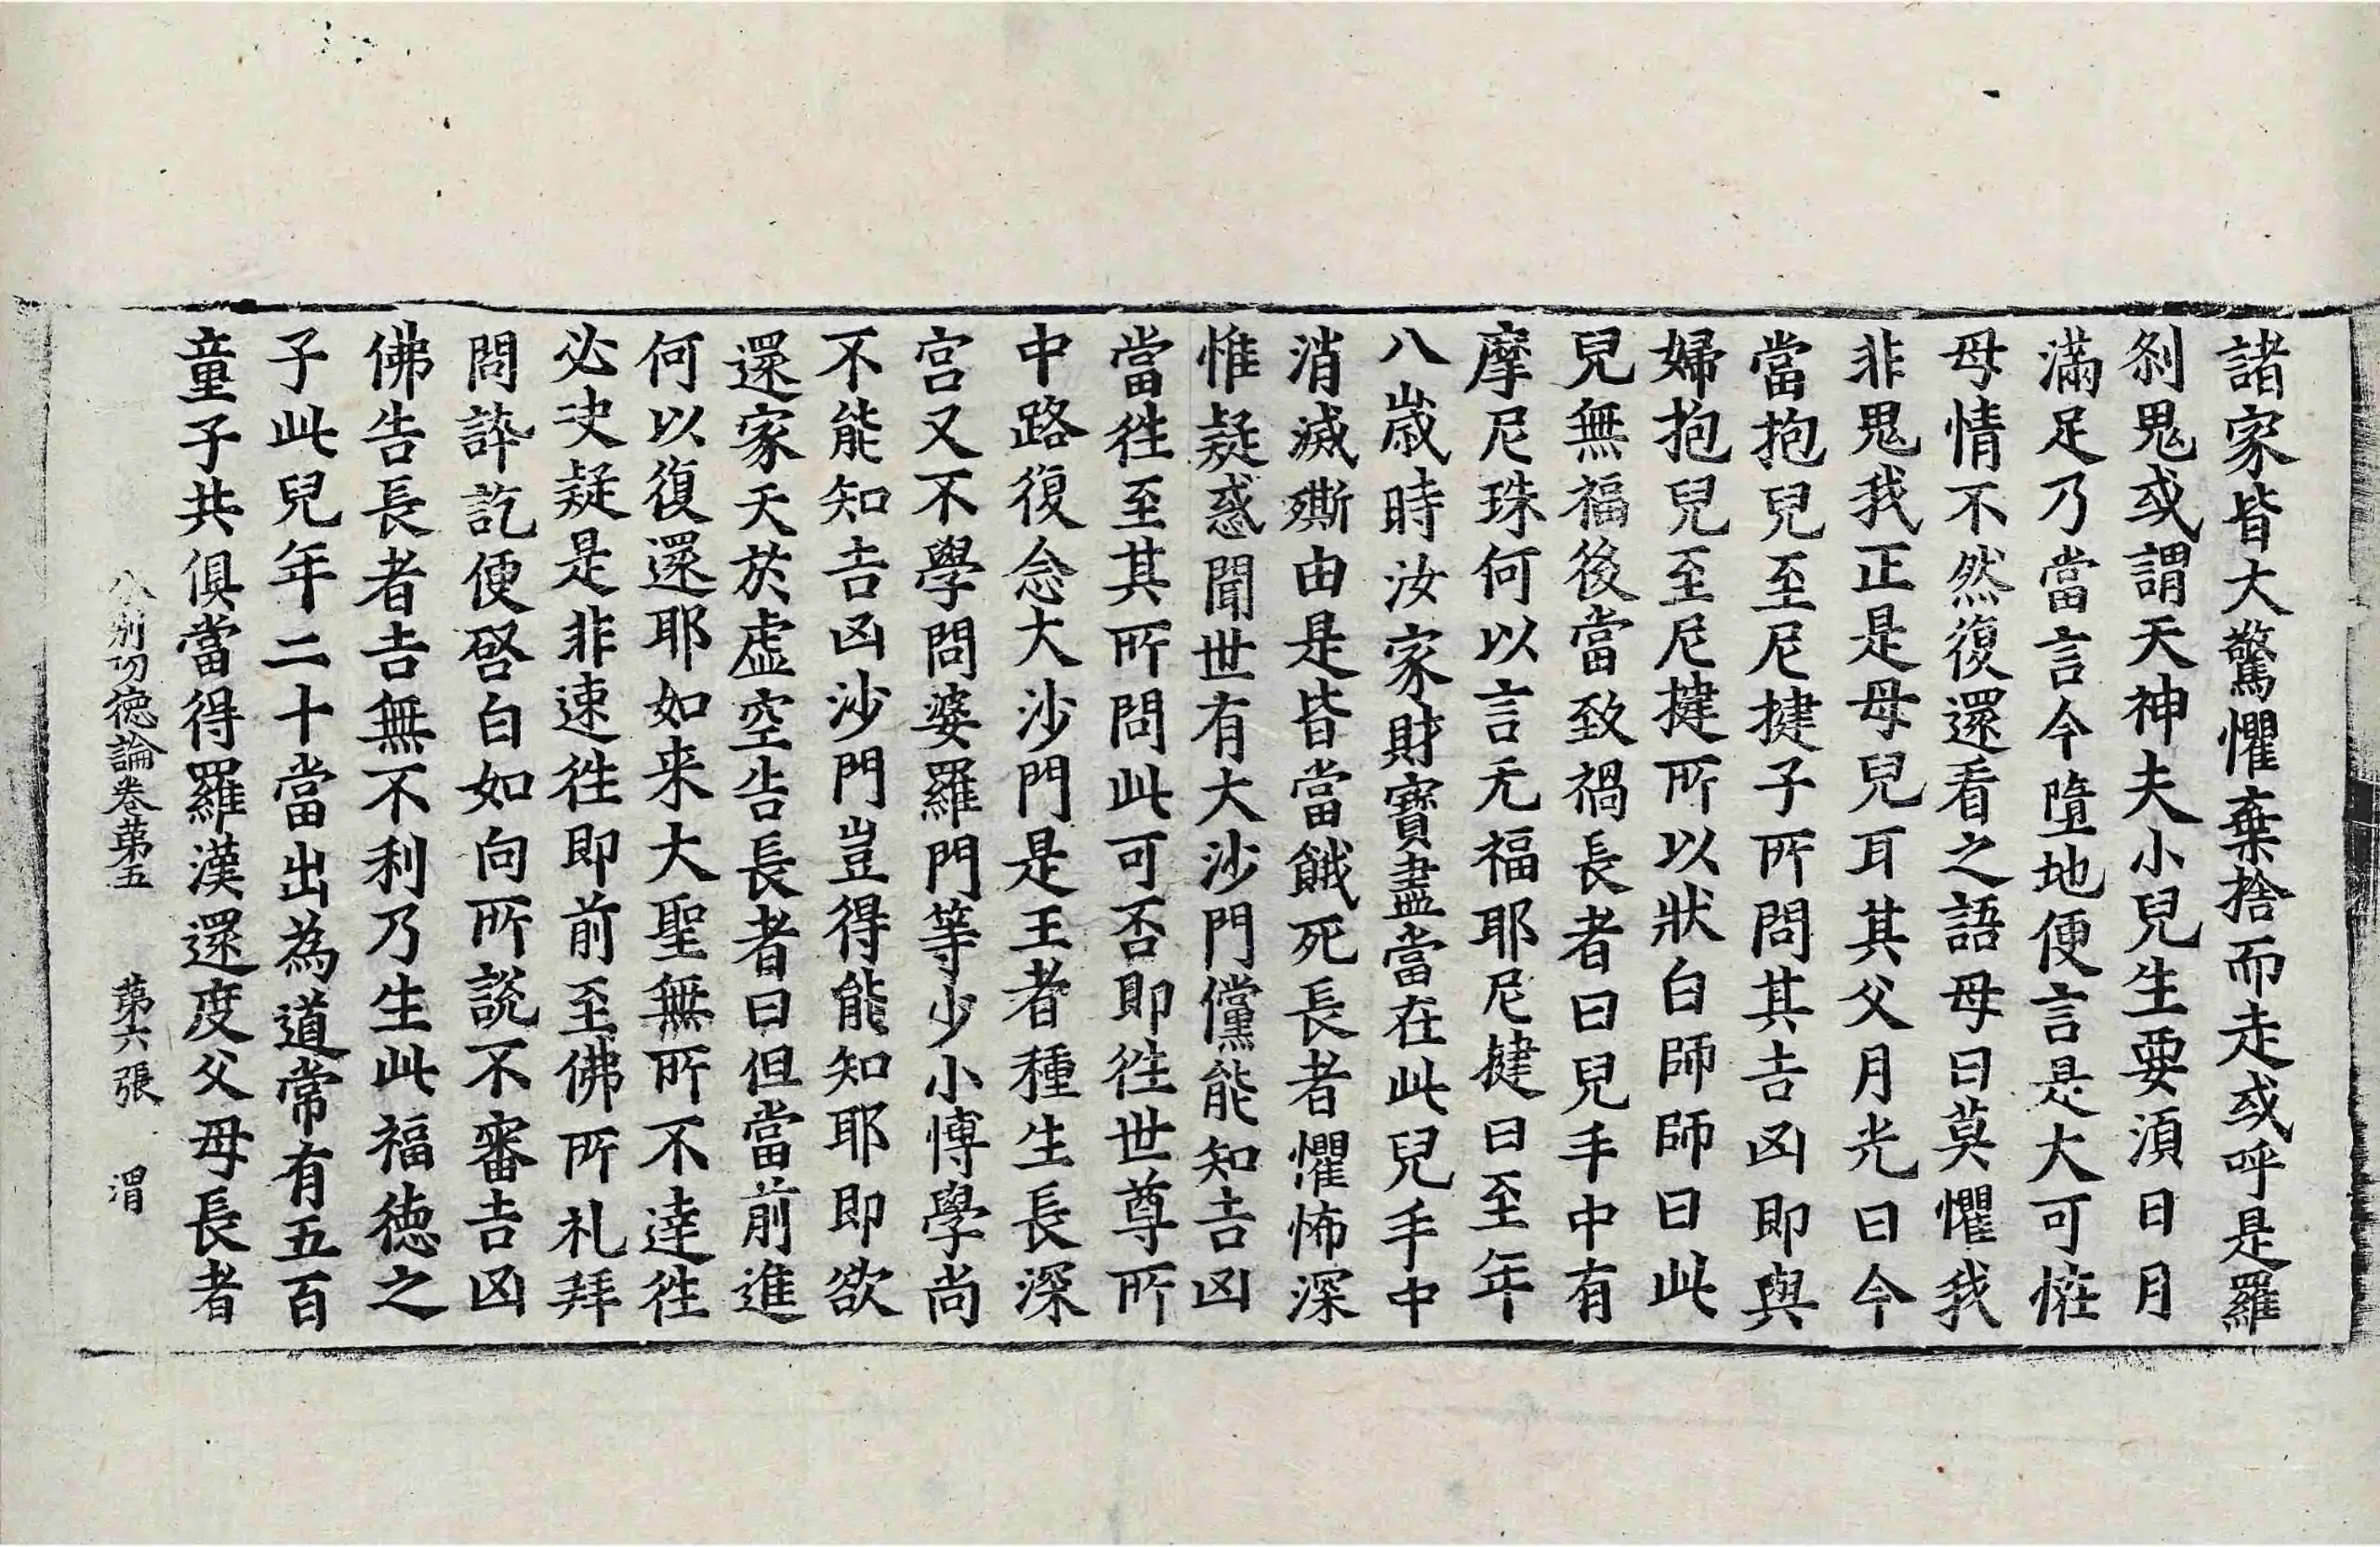 諸家皆大驚懼棄捨而走或呼是羅
剎鬼或謂天神夫小兒生要湏日月
滿足乃當言今墮地便言是大可恠
母情不然復還看之語母曰莫懼我
非鬼我正是母兒耳其父月光曰今
當抱兒至尼揵子所問其吉凶即與
婦抱兒至尼揵所以狀白師師曰此
兒無福後當致禍長者曰兒手中有
摩尼珠何以言无福耶尼揵曰至年
八歲時汝家財寶盡當在此兒手中
消滅㒋由是皆當餓死長者懼怖深
惟疑惑聞世有大沙門儻能知吉凶
當往至其所問此可否即往世尊所
中路復念大沙門是王者種生長深
宮又不學問婆羅門等少小博學尚
不能知吉凶沙門豈得能知耶即欲
還家天於虛空告長者曰但當前進
何以復還耶如来大聖無所不達往
必决疑是非速往即前至佛所礼拜
問訊訖便啓白如向所說不審吉凶
佛告長者吉無不利乃生此福德之
子此兒年二十當出為道常有五百
童子共俱當得羅漢還度父母長者
分別功德論卷第五 第六張 渭